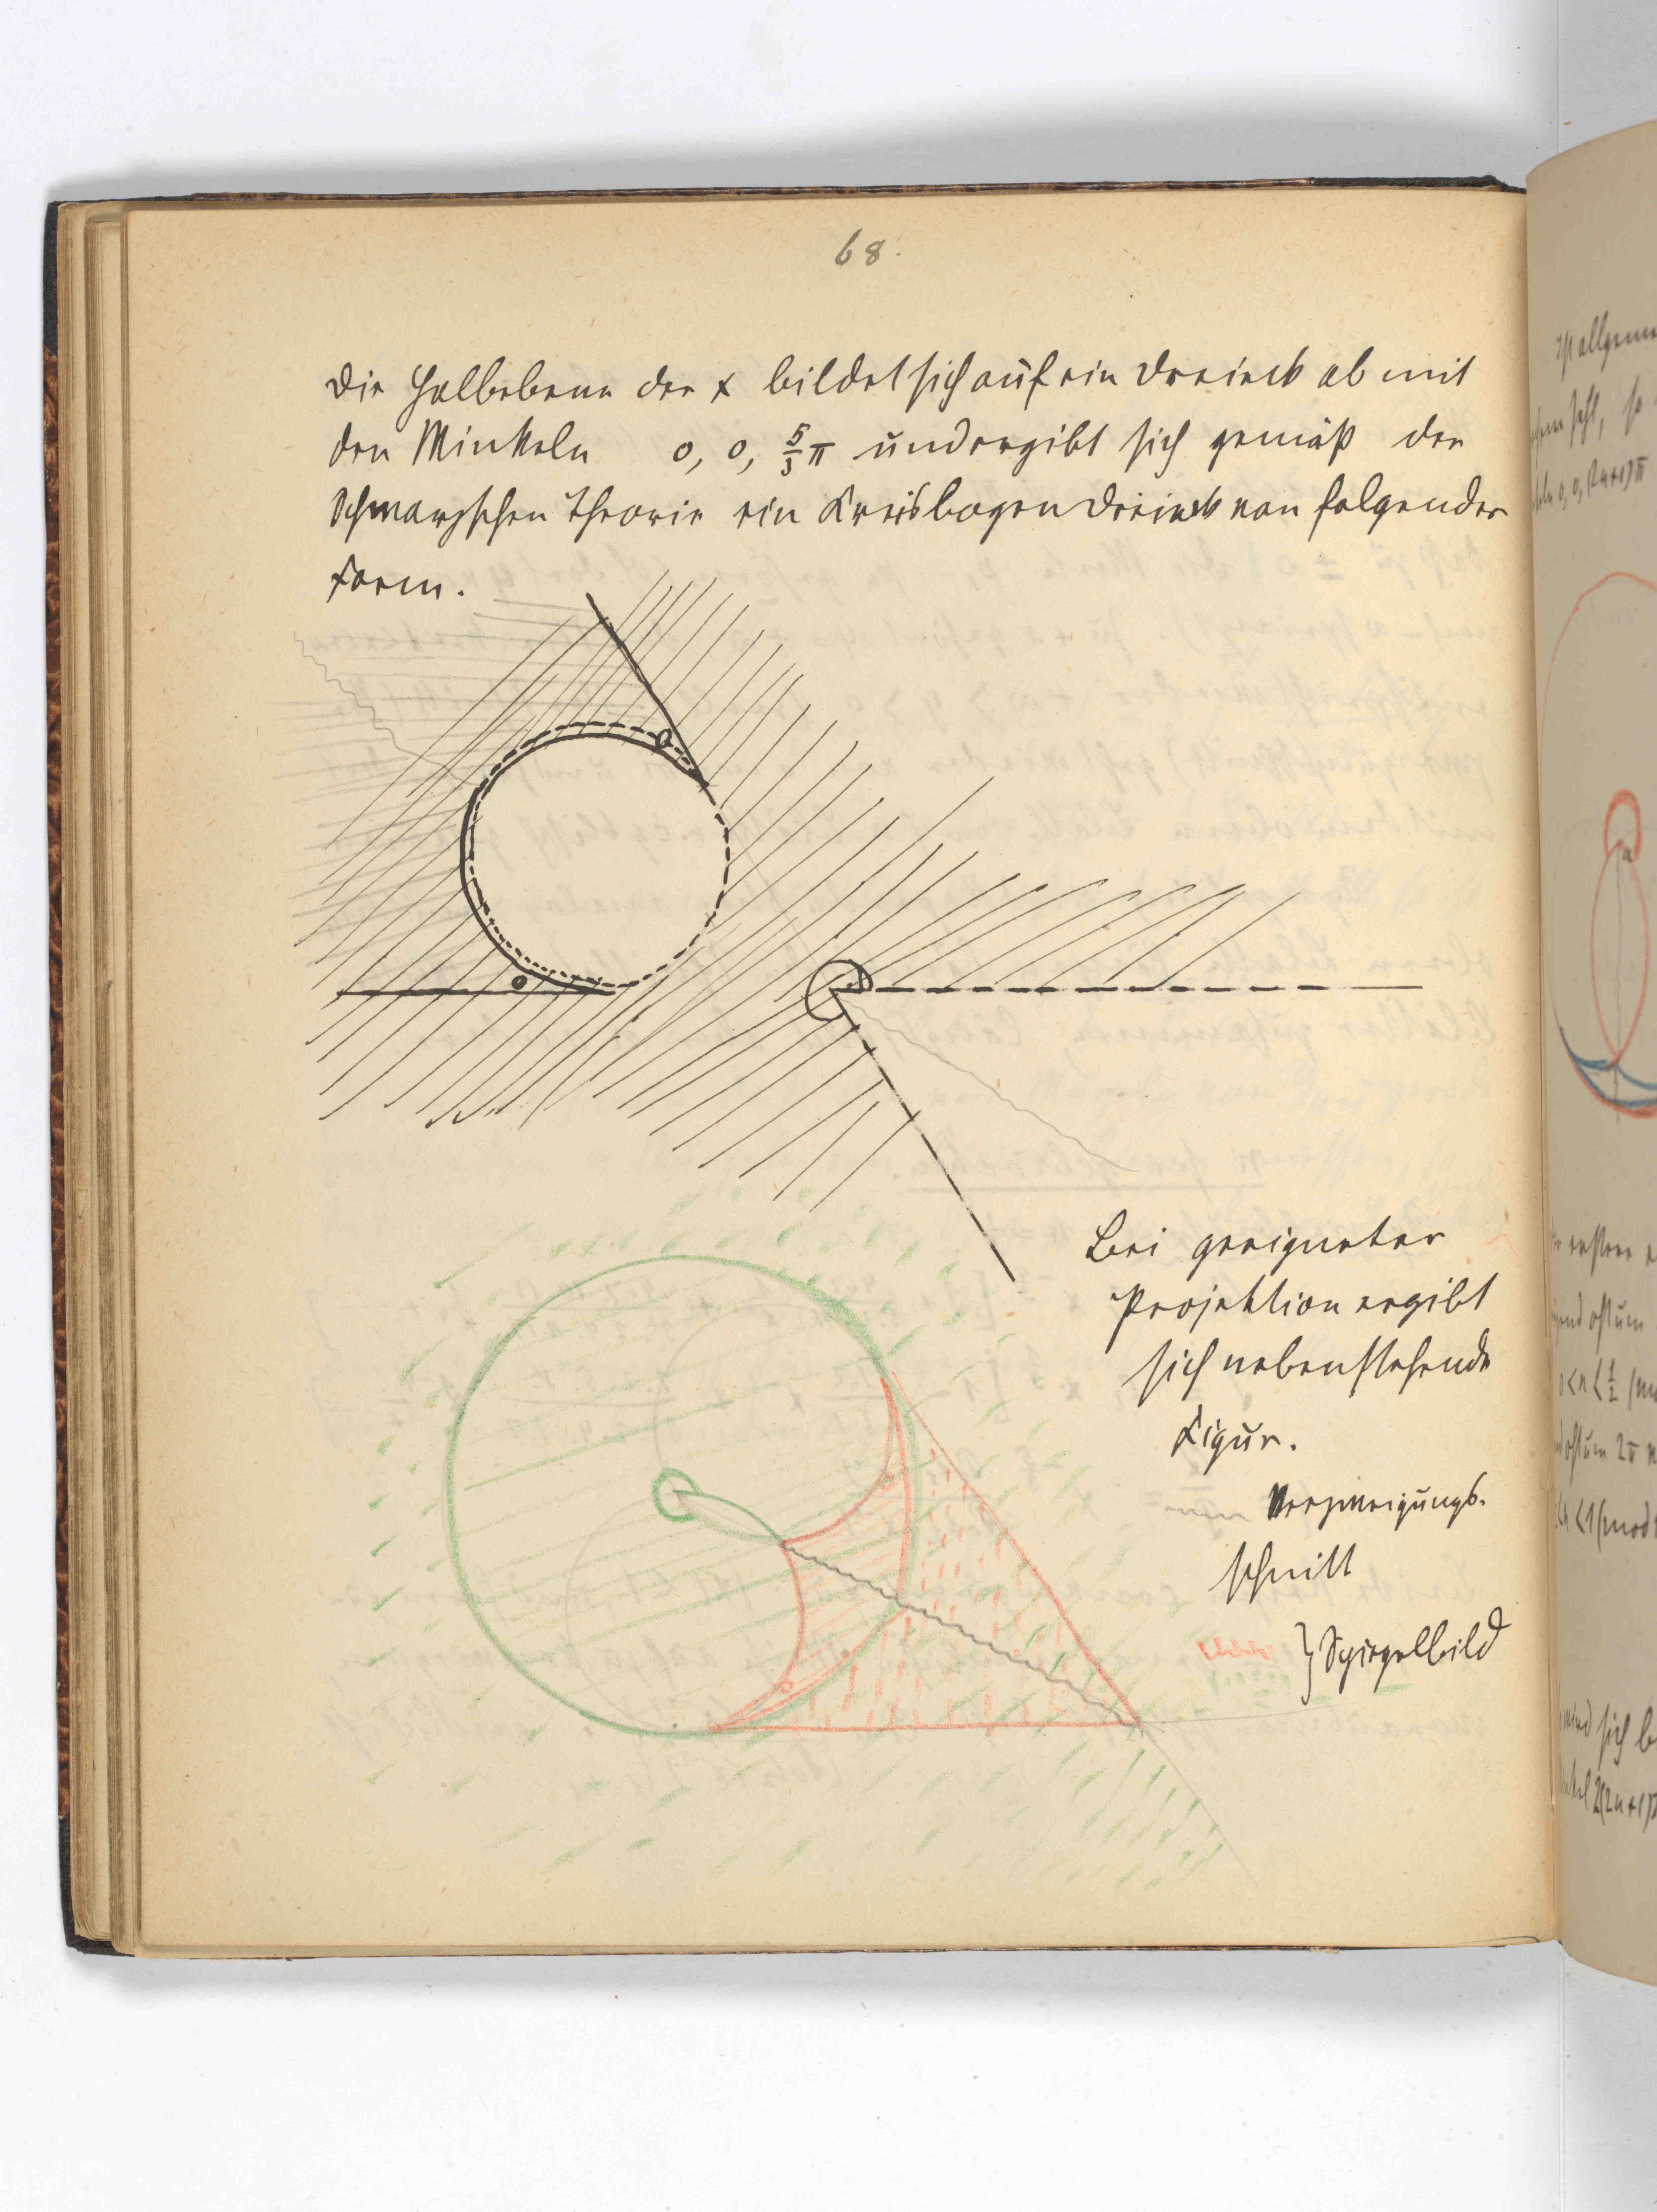 68.
Die Halbebene der x bildet sich auf ein Dreieck ab mit
den Winkeln 0, 0, 5/3 π und ergibt sich gemäß der
Schwarzschen Theorie ein Kreisbogendreieck von folgender
Form.
0
0
Bei geeigneter
Projektion ergibt
sich nebenstehende
Figur.
Verzweigungs-
schnitt
} Spiegelbild